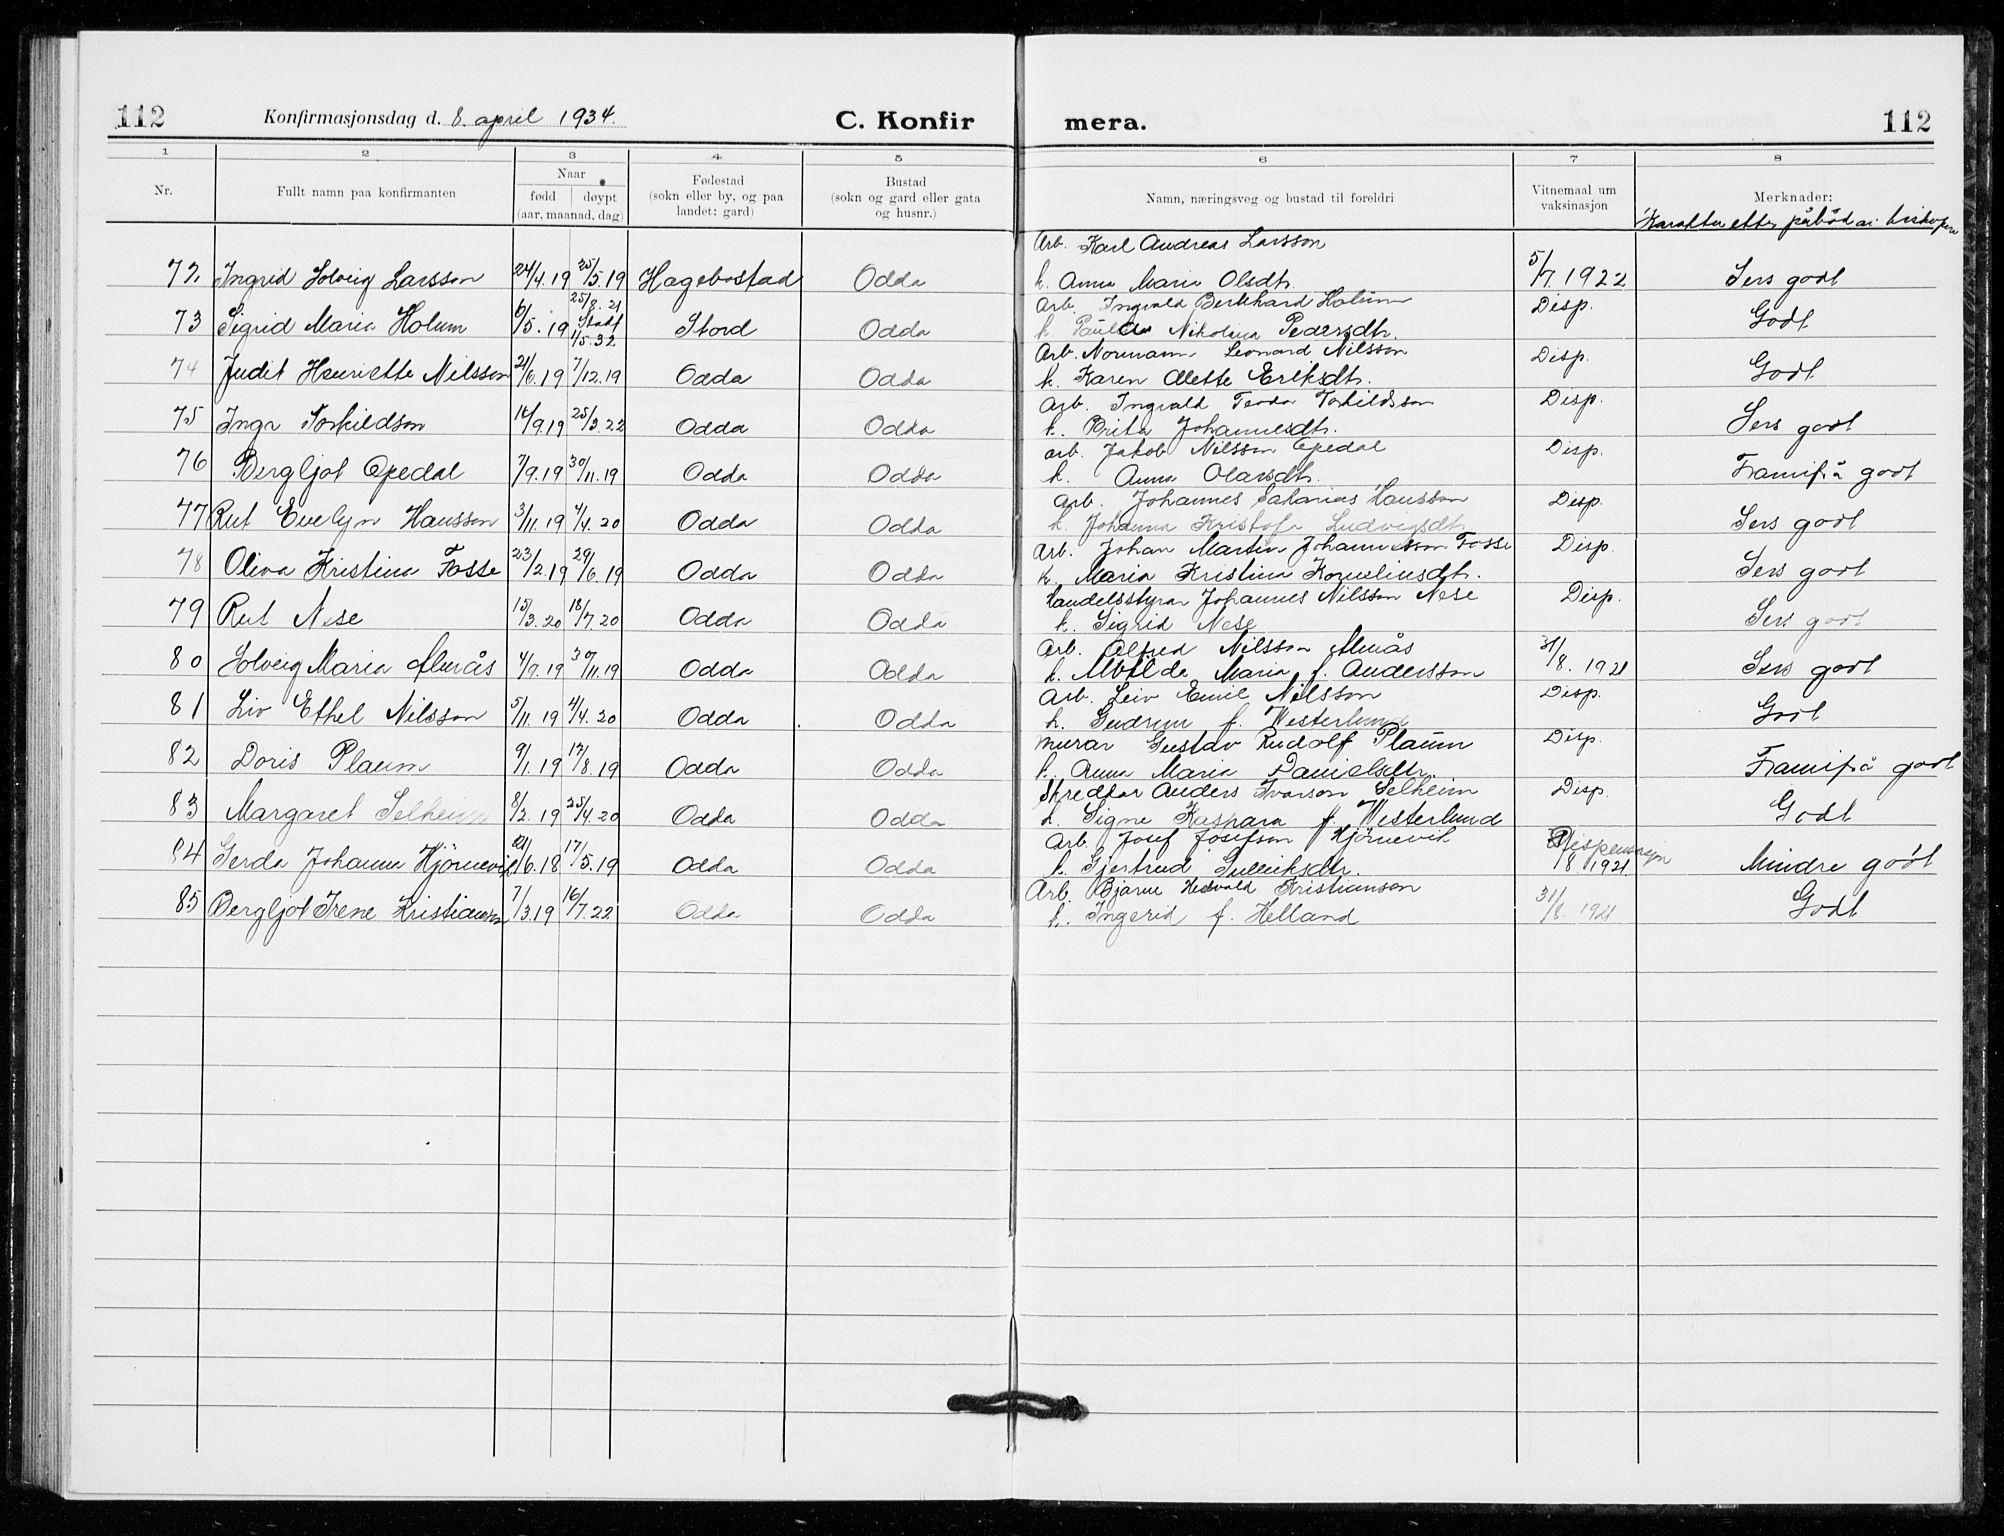 112 Konfirmasjonsdag d. 8. april 1934. C. Konfir mera. 112
1 2 3 4 5 6 7 8
Nr. Fullt namn paa konfirmanten Naar fødd døypt (aar, maanad, dag) Fødestad (sokn eller by, og paa landet: gard) Bustad (sokn og gard eller gata og husnr.) Namn, næringsveg og bustad til foreldri Vitnemaal um vaksinasjon Merknader:
Karakter etter påbod av biskopen
Arb. Karl Andreas Larsson
72 Ingrid Solveig Larsson 24/4.19 25/5.19 Hagebostad Odda k. Anna Maria Olsdtr. 5/7.1922 Sers godt
25/8.21 Arb. Ingvald Bernhard Holum Disp.
73 Sigrid Maria Holum 6/5.19 Stadf 1/5.32 Stord Odda k. Paula Nikolina Pedersdtr. Godt
Arb. Normann Leonard Nilsson Disp.
74 Judit Henriette Nilsson 21/6.19 7/12.19 Odda Odda k. Karen Olette Eriksdtr. Godt
Arb. Ingvald Teodor Torkildsson Disp.
75 Inga Torkildson 14/9.19 25/3.22 Odda Odda k. Brita Johannesdtr. Sers godt
arb. Jakob Nilsson Opedal Disp.
76 Bergljot Opedal 7/9.19 30/11.19 Odda Odda k. Anna Olavsdtr. Framifrå godt
Arb. Johannes Sakarias Hansson Disp.
77 Rut Evelyn Hansson 3/11.19 4/4.20 Odda Odda k. Johanna Kristofa Ludvigsdtr. Sers godt
Arb. Johan Martin Johannesson Fosse Disp.
78 Oliva Kristina Fosse 23/2.19 29/6.19 Odda Odda k. Maria Kristina Korneliusdtr. Sers godt
Handelsstyrar Johannes Nilsson Nese Disp.
79 Rut Nese 15/3.20 18/7.20 Odda Odda k. Sigrid Nese Sers godt
Arb. Alfred Nilsson Almås 31/8.1921
80 Solveig Maria Almås 4/9.19 30/11.19 Odda Odda k. Alvilde Maria f. Andersson Sers godt
Arb. Leiv Emil Nilsson Disp.
81 Liv Ethel Nilsson 5/11.19 4/4.20 Odda Odda k. Gudrun f. Westerlund Godt
Murar Gustav Rudolf Plaum Disp.
82 Doris Plaum 9/1.19 17/8.19 Odda Odda k. Anna Maria Danielsdtr. Framifrå godt
Skreddar Anders Ivarson Selheim Disp.
83 Margaret Selheim 8/2.19 25/4.20 Odda Odda k. Signe Kaspara f. Westerlund Godt
Arb. Josef Josefson Hjörnevik Dispensasjon
84 Gerda Johanna Hjörnevik 21/6.18 17/5.19 Odda Odda k. Gjertrud Sulleiksdtr. /8.1921 Mindre godt
Arb. Bjarne Hedvald Kristianson
85 Bergljot Irene Kristianson 7/3.19 16/7.22 Odda Odda k. Ingerid f. Helland 31/8.1921 Godt